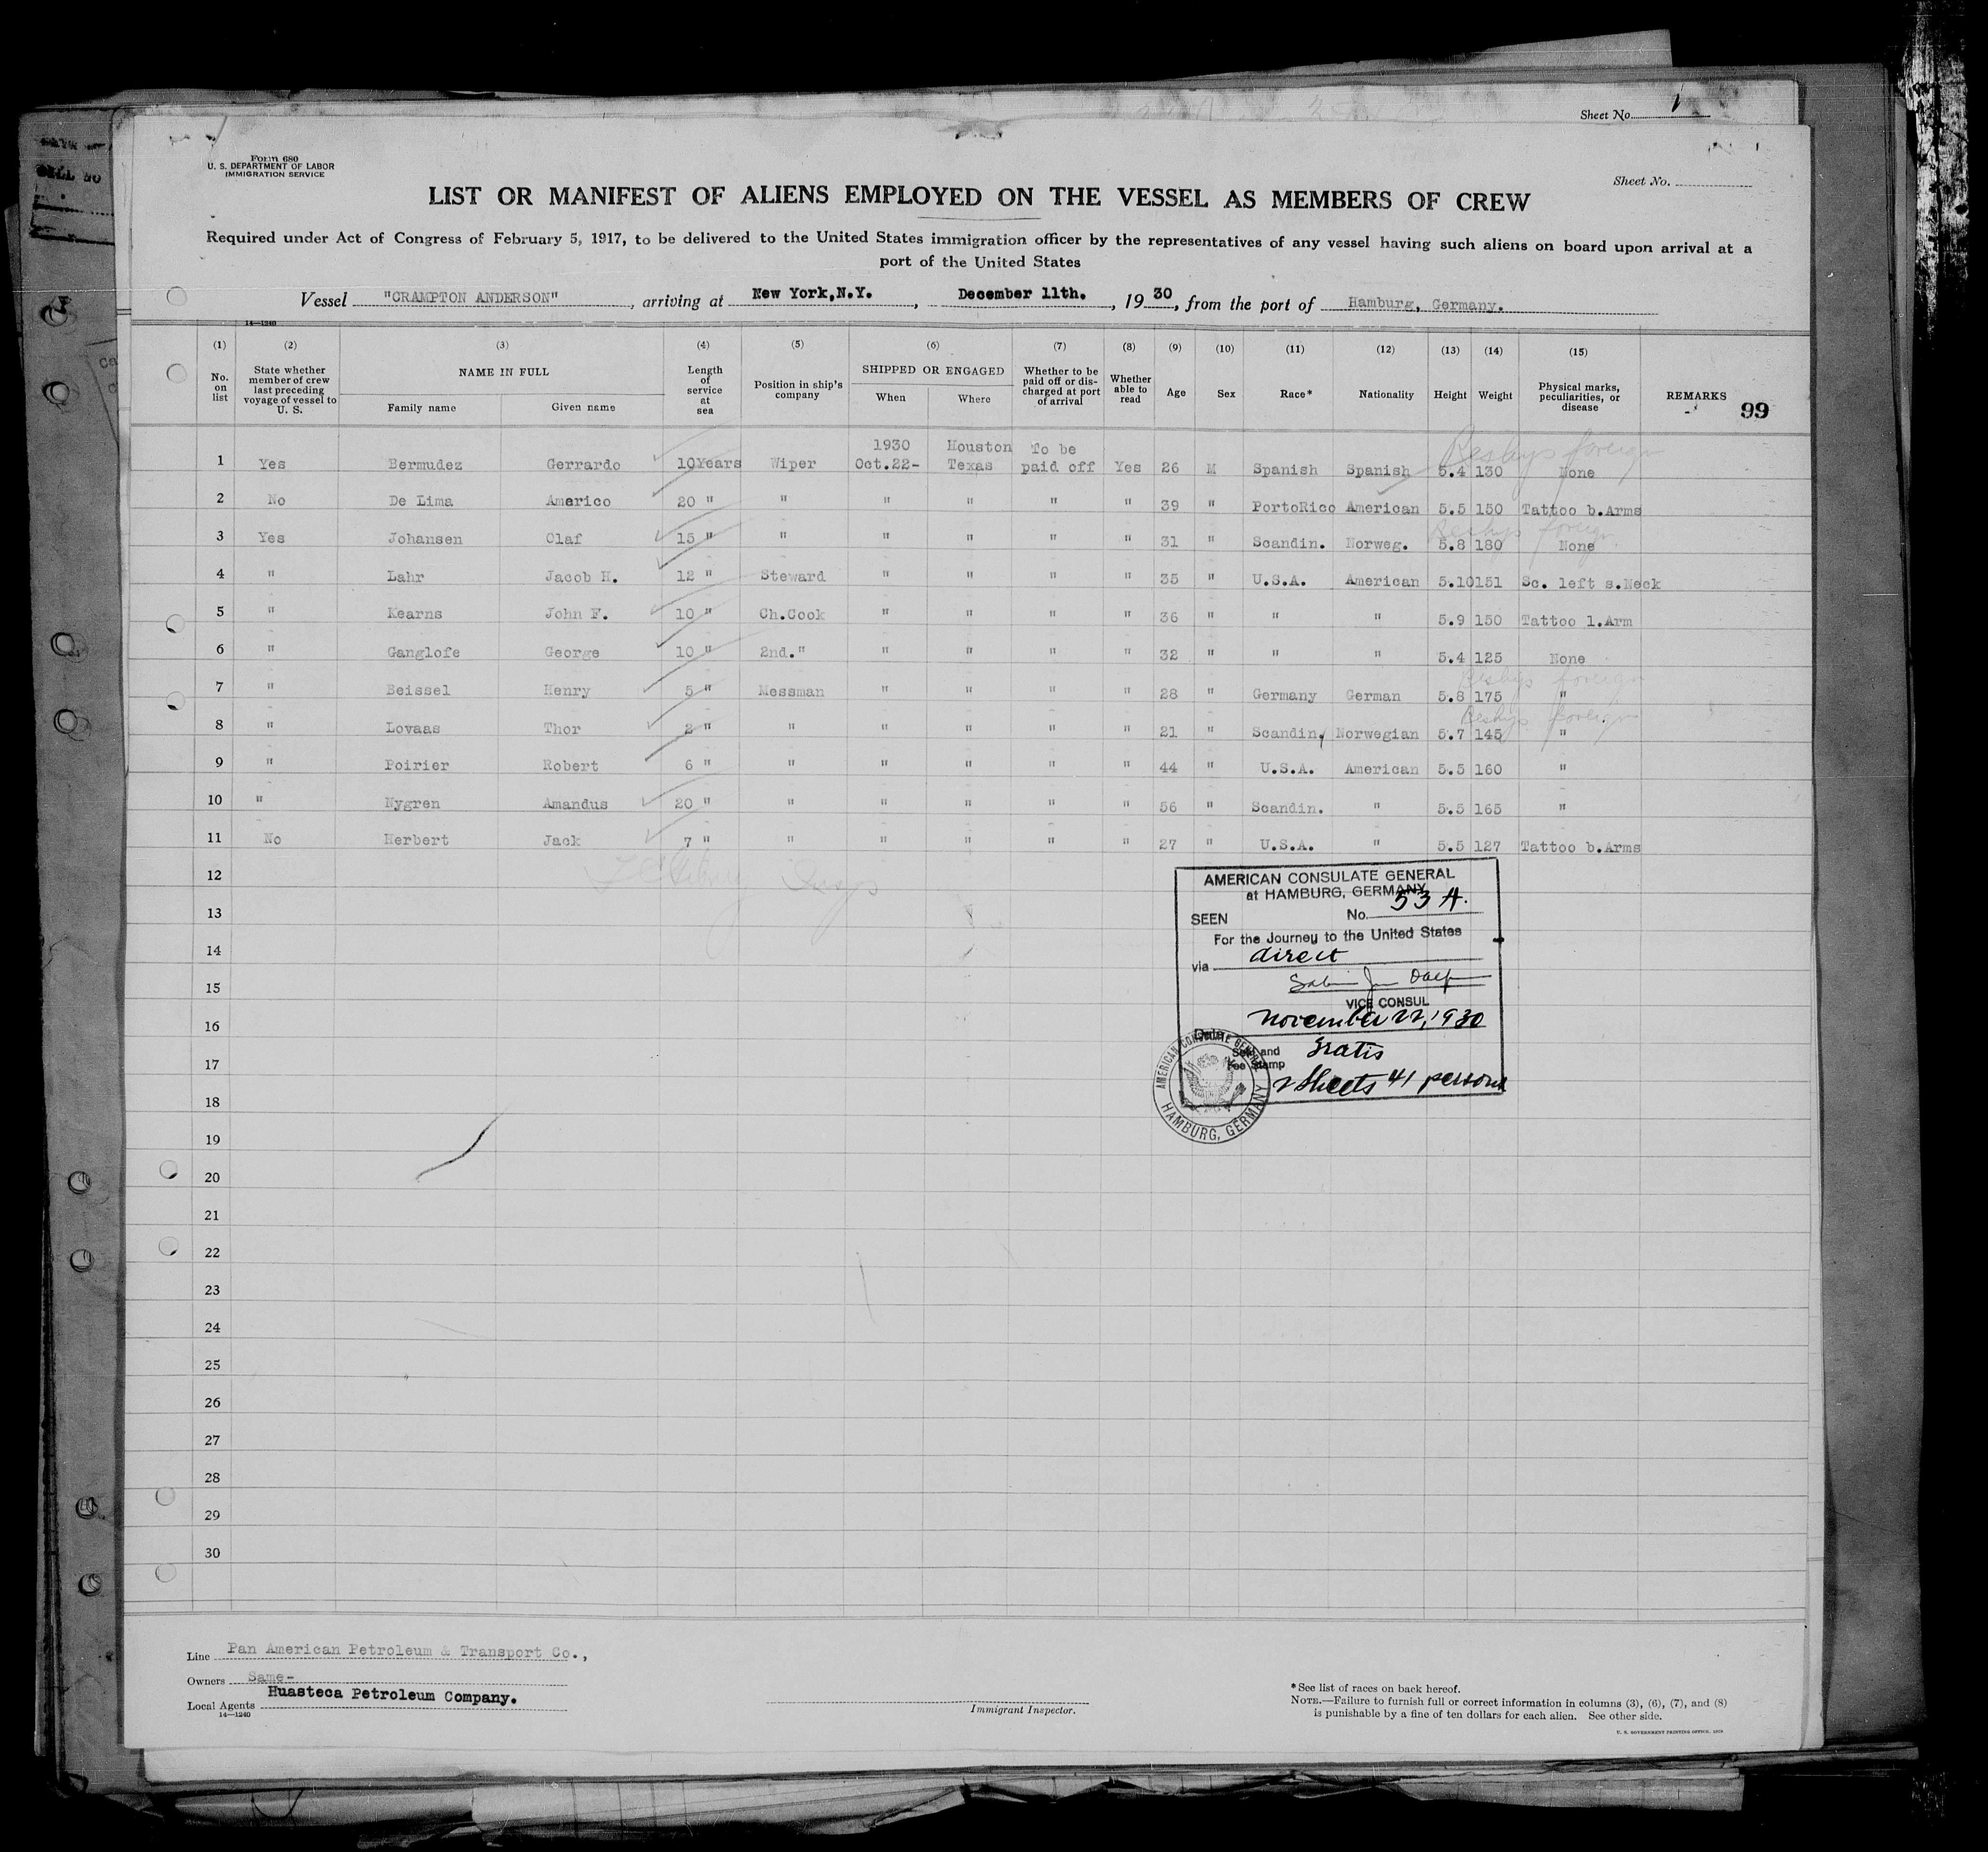 Sheet No. 1
Form 680
U. S. DEPARTMENT OF LABOR
IMMIGRATION SERVICE
Sheet No.
LIST OR MANIFEST OF ALIENS EMPLOYED ON THE VESSEL AS MEMBERS OF CREW
Required under Act of Congress of February 5, 1917, to be delivered to the United States immigration officer by the representatives of any vessel having such aliens on board upon arrival at a
port of the United States
Vessel "CRAMPTON ANDERSON", arriving at New York,N.Y., December 11th., 1930, from the port of Hamburg, Germany.
14—1240
(1) (2) (3) (4) (5) (6) (7) (8) (9) (10) (11) (12) (13) (14) (15)
No. on list
State whether member of crew last preceding voyage of vessel to U. S.
NAME IN FULL
Family name Given name
Length of service at sea
Position in ship's company
SHIPPED OR ENGAGED
When Where
Whether to be paid off or discharged at port of arrival
Whether able to read
Age
Sex
Race*
Nationality
Height
Weight
Physical marks, peculiarities, or disease
REMARKS
99
1930 Houston To be
1 Yes Bermudez Gerrardo 10Years Wiper Oct.22- Texas paid off Yes 26 M Spanish Spanish 5.4 130 None
2 No De Lima Amarico 20 " " " " " " 39 " PortoRico American 5.5 150 Tattoo b.Arms
3 Yes Johansen Olaf 15 " " " " " " 31 " Scandin. Norweg. 5.8 180 None
4 " Lahr Jacob H. 12 " Steward " " " " 35 " U.S.A. American 5.10 151 Sc. left s.Neck
5 " Kearns John F. 10 " Ch.Cook " " " " 36 " " " 5.9 150 Tattoo l.Arm
6 " Ganglofe George 10 " 2nd." " " " " 32 " " " 5.4 125 None
7 " Beissel Henry 5 " Messman " " " " 28 " Germany German 5.8 175 "
8 " Lovaas Thor 2 " " " " " " 21 " Scandin. Norwegian 5.7 145 "
9 " Poirier Robert 6 " " " " " " 44 " U.S.A. American 5.5 160 "
10 " Nygren Amandus 20 " " " " " " 56 " Scandin. " 5.5 165 "
11 No Herbert Jack 7 " " " " " " 27 " U.S.A. " 5.5 127 Tattoo b.Arms
12
13
14
15
16
17
18
19
20
21
22
23
24
25
26
27
28
29
30
AMERICAN CONSULATE GENERAL
at HAMBURG, GERMANY
SEEN No. 53 A.
For the Journey to the United States
via direct
VICE CONSUL
Date November 22, 1930
Seal and Fee Stamp gratis
2 sheets 41 persons
AMERICAN CONSULATE GENERAL
HAMBURG, GERMANY
Line Pan American Petroleum & Transport Co.,
Owners Same-
Local Agents Huasteca Petroleum Company.
14—1240
Immigrant Inspector.
*See list of races on back hereof.
NOTE.—Failure to furnish full or correct information in columns (3), (6), (7), and (8)
is punishable by a fine of ten dollars for each alien. See other side.